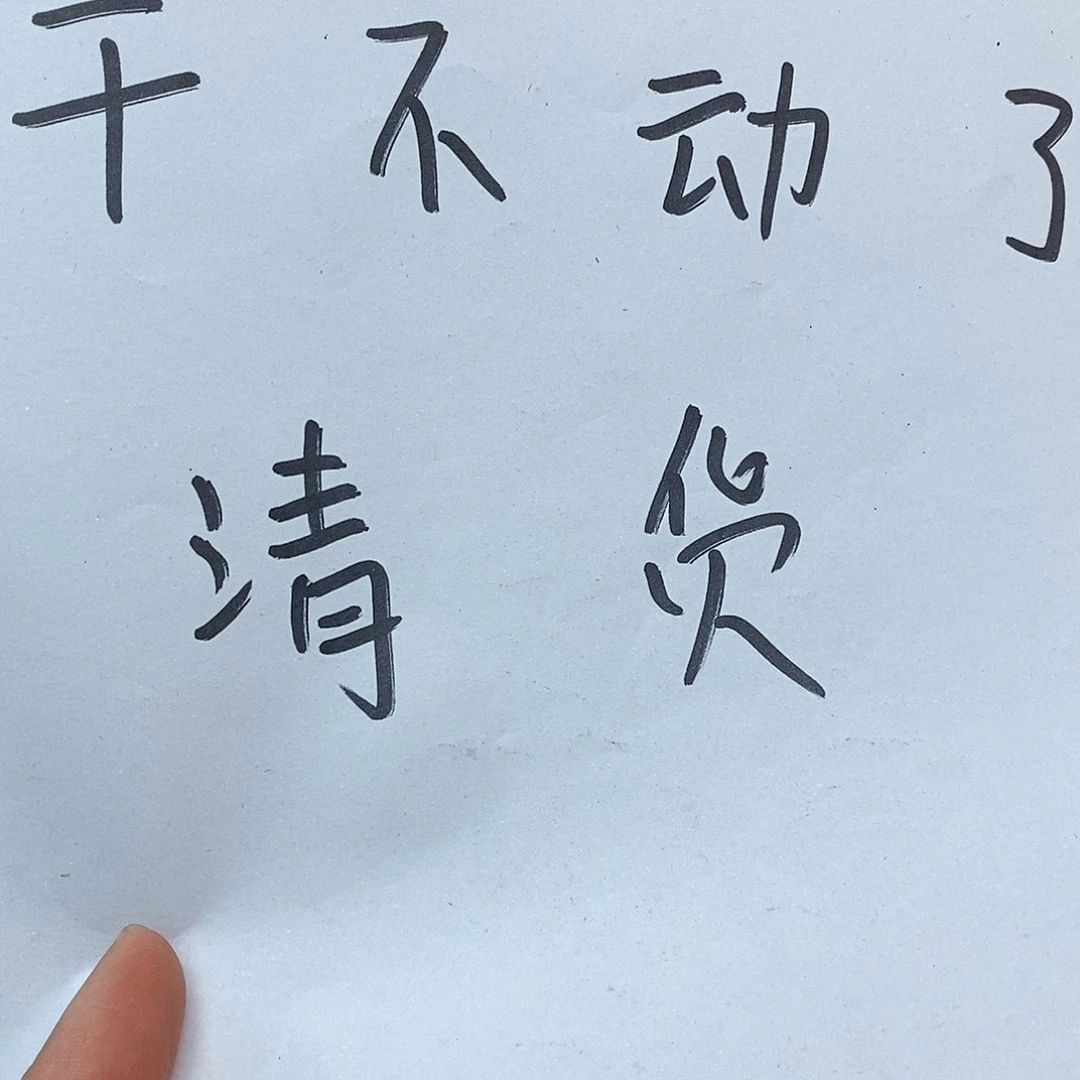 干不动了
清货